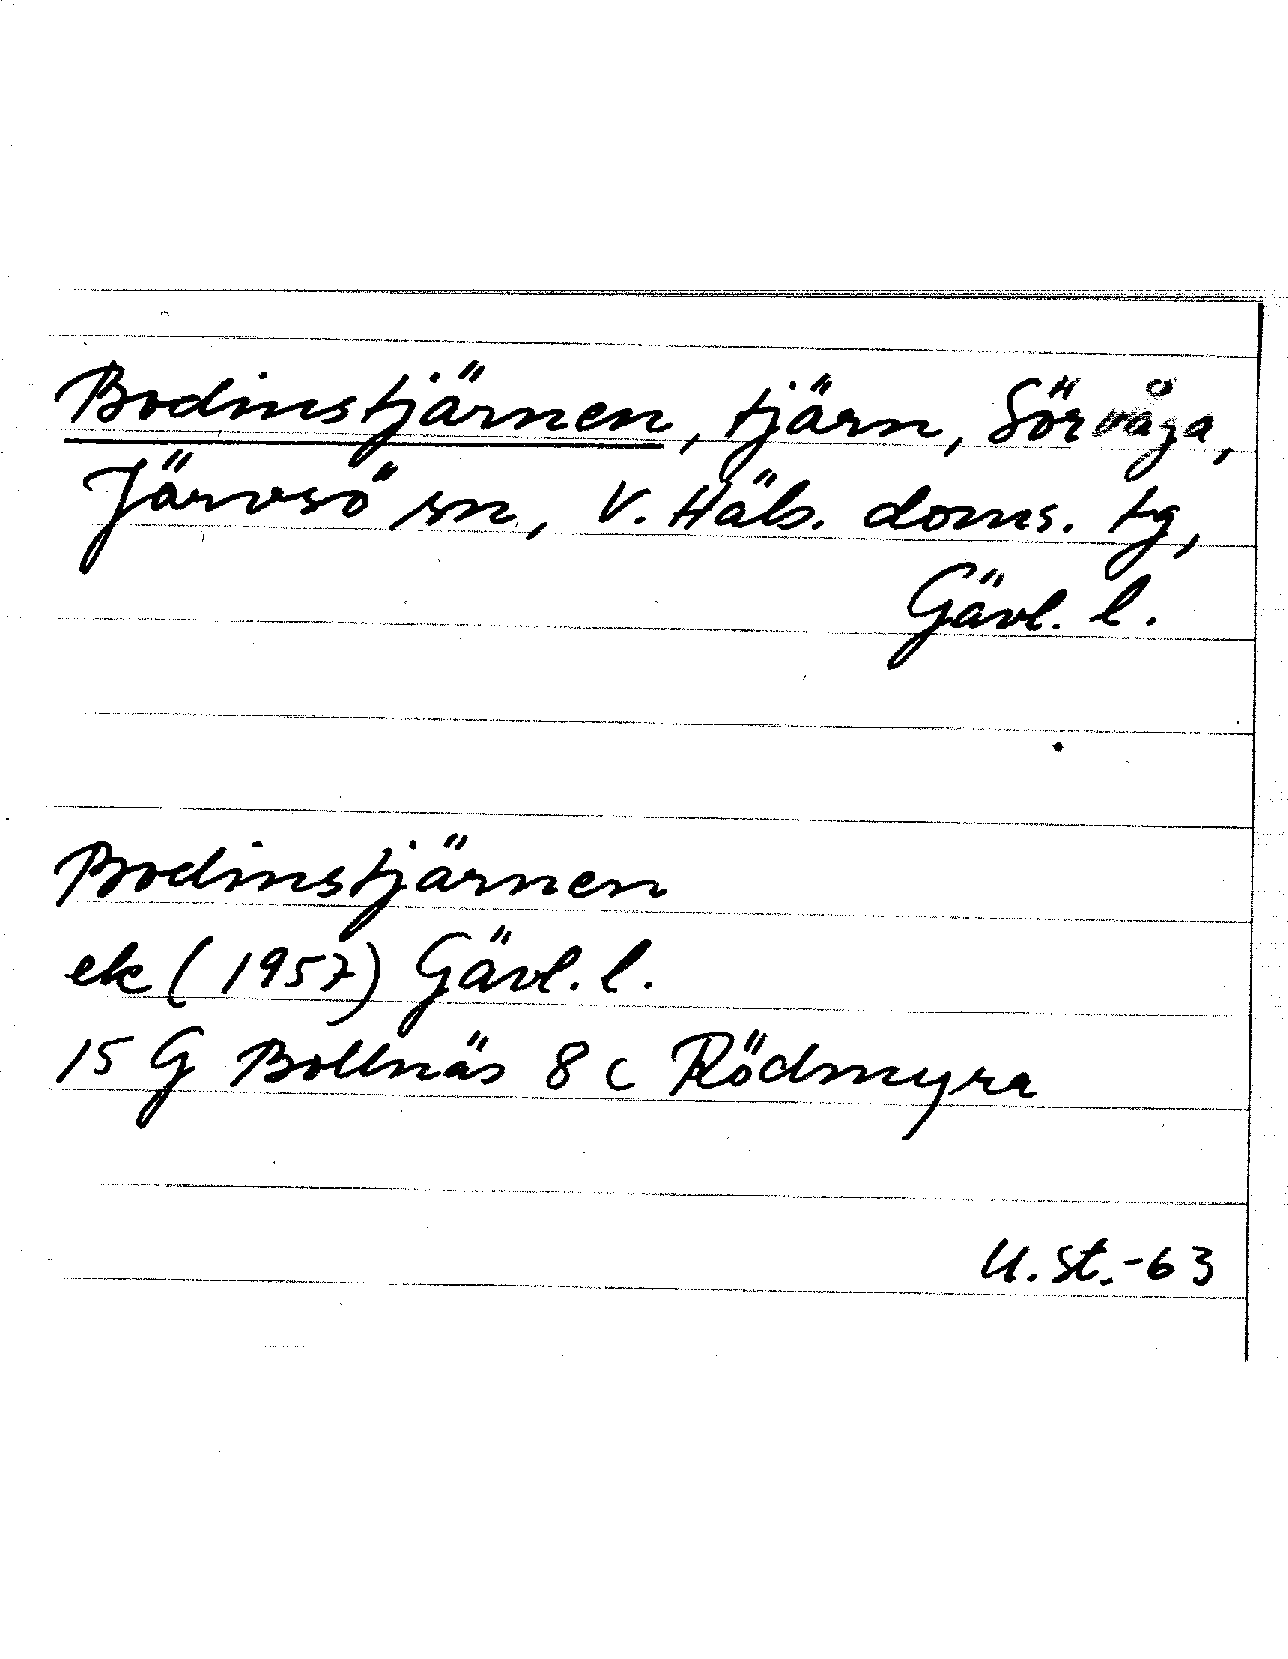 Bodinstjärnen, tjärn, Sörvåga,
Järvsö sn, V. Häls. doms. tg,
Gävl. l.
Bodinstjärnen
ek (1957) Gävl. l.
15 G Bollnäs 8 c Rödmyra
U. St. -63